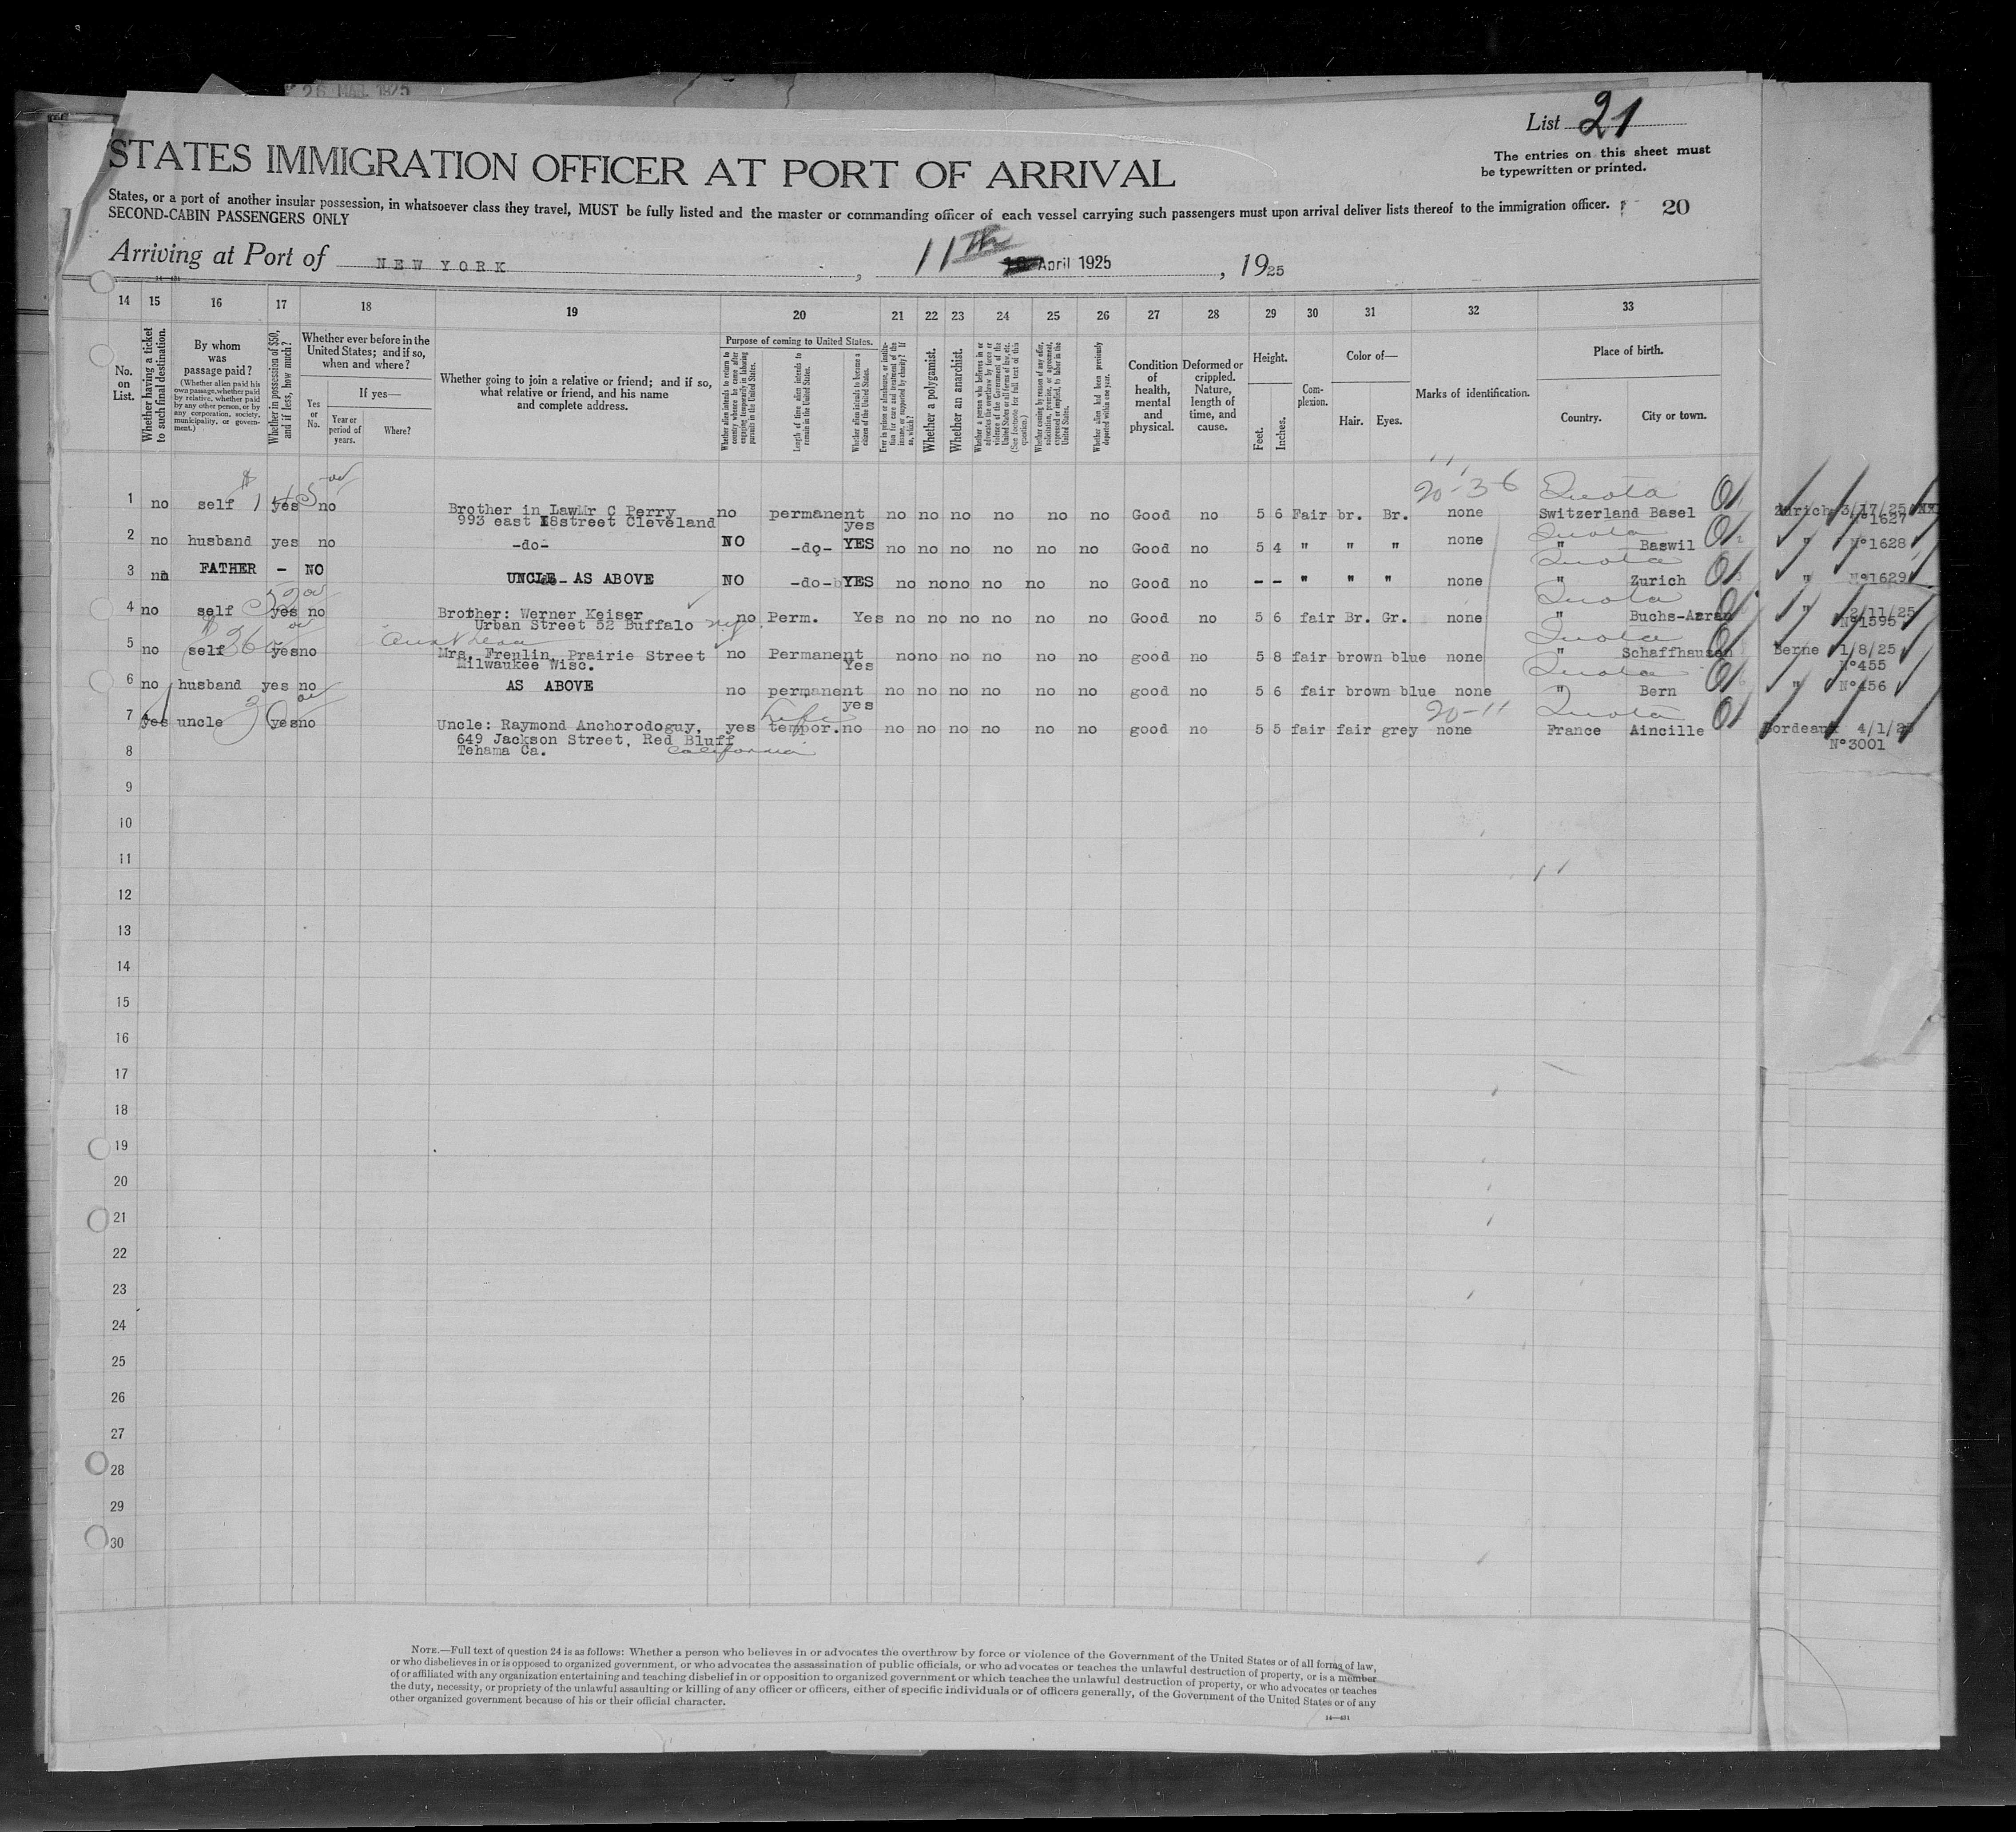 26 MAR 1925
List 21
The entries on this sheet must
be typewritten or printed.
STATES IMMIGRATION OFFICER AT PORT OF ARRIVAL
States, or a port of another insular possession, in whatsoever class they travel, MUST be fully listed and the master or commanding officer of each vessel carrying such passengers must upon arrival deliver lists thereof to the immigration officer.
SECOND-CABIN PASSENGERS ONLY
20
Arriving at Port of NEW YORK, 11th April 1925, 1925
14 15 16 17 18 19 20 21 22 23 24 25 26 27 28 29 30 31 32 33
No. on List.
Whether having a ticket to such final destination.
By whom was passage paid?
(Whether alien paid his own passage, whether paid by relative, whether paid by any other person, or by any corporation, society, municipality, or government.)
Whether in possession of $50, and if less, how much?
Whether ever before in the United States; and if so, when and where?
Yes or No.
If yes—
Year or period of years.
Where?
Whether going to join a relative or friend; and if so, what relative or friend, and his name and complete address.
Purpose of coming to United States.
Whether alien intends to return to country whence he came after engaging temporarily in laboring pursuits in the United States.
Length of time alien intends to remain in the United States.
Whether alien intends to become a citizen of the United States.
Ever in prison or almshouse, or institution for care and treatment of the insane, or supported by charity? If so, which?
Whether a polygamist.
Whether an anarchist.
Whether a person who believes in or advocates the overthrow by force or violence of the Government of the United States or all forms of law, etc. (See footnote for full text of this question.)
Whether coming by reason of any offer, solicitation, promise, or agreement, expressed or implied, to labor in the United States.
Whether alien had been previously deported within one year.
Condition of health, mental and physical.
Deformed or crippled. Nature, length of time, and cause.
Height.
Feet.
Inches.
Complexion.
Color of—
Hair.
Eyes.
Marks of identification.
Place of birth.
Country.
City or town.
20-36 Quota
1 no self yes no Brother in Law Mr C Perry no permanent no no no no no no Good no 5 6 Fair br. Br. none Switzerland Basel Zurich 3/17/25
993 east 18street Cleveland yes N°1627
Quota
2 no husband yes no -do- NO -do- YES no no no no no no Good no 5 4 " " " none " Baswil " N°1628
Quota
3 no FATHER - NO UNCLE - AS ABOVE NO -do- YES no no no no no no Good no - - " " " none " Zurich " N°1629
Quota
4 no self yes no Brother: Werner Keiser no Perm. Yes no no no no no no Good no 5 6 fair Br. Gr. none " Buchs-Aarau " 2/11/25
Urban Street 52 Buffalo ny N°1595
Quota
5 no self yes no Mrs. Frenlin, Prairie Street no Permanent no no no no no no good no 5 8 fair brown blue none " Schaffhausen Berne 1/8/25
Milwaukee Wisc. Yes N°455
Quota
6 no husband yes no AS ABOVE no permanent no no no no no no good no 5 6 fair brown blue none " Bern " N°456
yes
20-11 Quota
7 yes uncle 30 yes no Uncle: Raymond Anchorodoguy, yes tempor. no no no no no no no good no 5 5 fair fair grey none France Aincille Bordeaux 4/1/25
649 Jackson Street, Red Bluff N°3001
Tehama Ca. California
8
9
10
11
12
13
14
15
16
17
18
19
20
21
22
23
24
25
26
27
28
29
30
NOTE.—Full text of question 24 is as follows: Whether a person who believes in or advocates the overthrow by force or violence of the Government of the United States or of all forms of law,
or who disbelieves in or is opposed to organized government, or who advocates the assassination of public officials, or who advocates or teaches the unlawful destruction of property, or is a member
of or affiliated with any organization entertaining and teaching disbelief in or opposition to organized government or which teaches the unlawful destruction of property, or who advocates or teaches
the duty, necessity, or propriety of the unlawful assaulting or killing of any officer or officers, either of specific individuals or of officers generally, of the Government of the United States or of any
other organized government because of his or their official character.
14—431